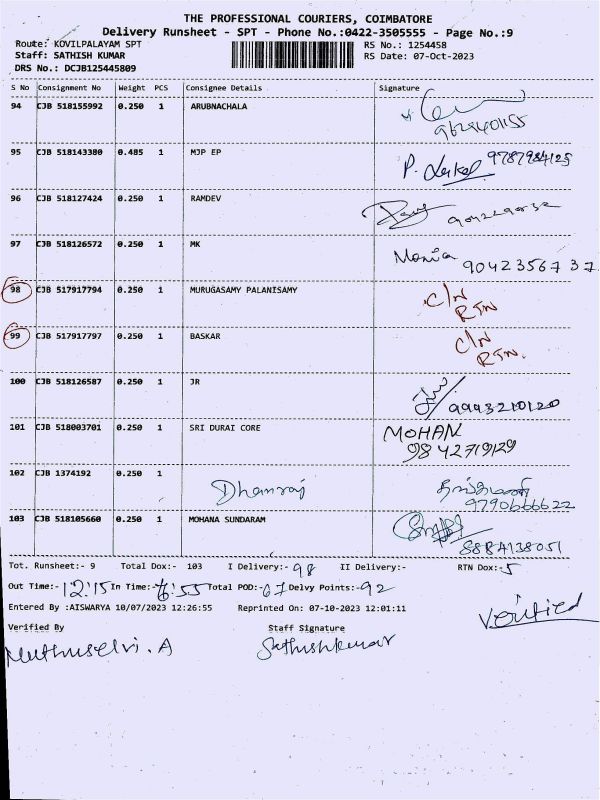 THE PROFESSIONAL COURIERS, COIMBATORE
Delivery Runsheet - SPT - Phone No.:0422-3505555 - Page No.:9
Route: KOVILPALAYAM SPT RS No.: 1254458
Staff: SATHISH KUMAR RS Date: 07-Oct-2023
DRS No.: DCJB125445809
S No Consignment No Weight PCS Consignee Details Signature
94 CJB 518155992 0.250 1 ARUBNACHALA
95 CJB 518143380 0.485 1 MJP EP 9787984125
96 CJB 518127424 0.250 1 RAMDEV
97 CJB 518126572 0.250 1 MK Monia 9042356737
98 CJB 517917794 0.250 1 MURUGASAMY PALANISAMY C/N
RTN
99 CJB 517917797 0.250 1 BASKAR C/N
RTN.
100 CJB 518126587 0.250 1 JR 9993210120
101 CJB 518003701 0.250 1 SRI DURAI CORE MOHAN
9842719129
102 CJB 1374192 0.250 1 Dhanraj தங்கமணி
9790666622
103 CJB 518105660 0.250 1 MOHANA SUNDARAM
8884138051
Tot. Runsheet:- 9 Total Dox:- 103 I Delivery:- 98 II Delivery:- RTN Dox:- 5
Out Time:- 12:15 In Time:- 6:55 Total POD:- 67 Delvy Points:- 92
Entered By :AISWARYA 10/07/2023 12:26:55 Reprinted On: 07-10-2023 12:01:11 Verified
Verified By Staff Signature
Muthuselvi. A Sathishkumar